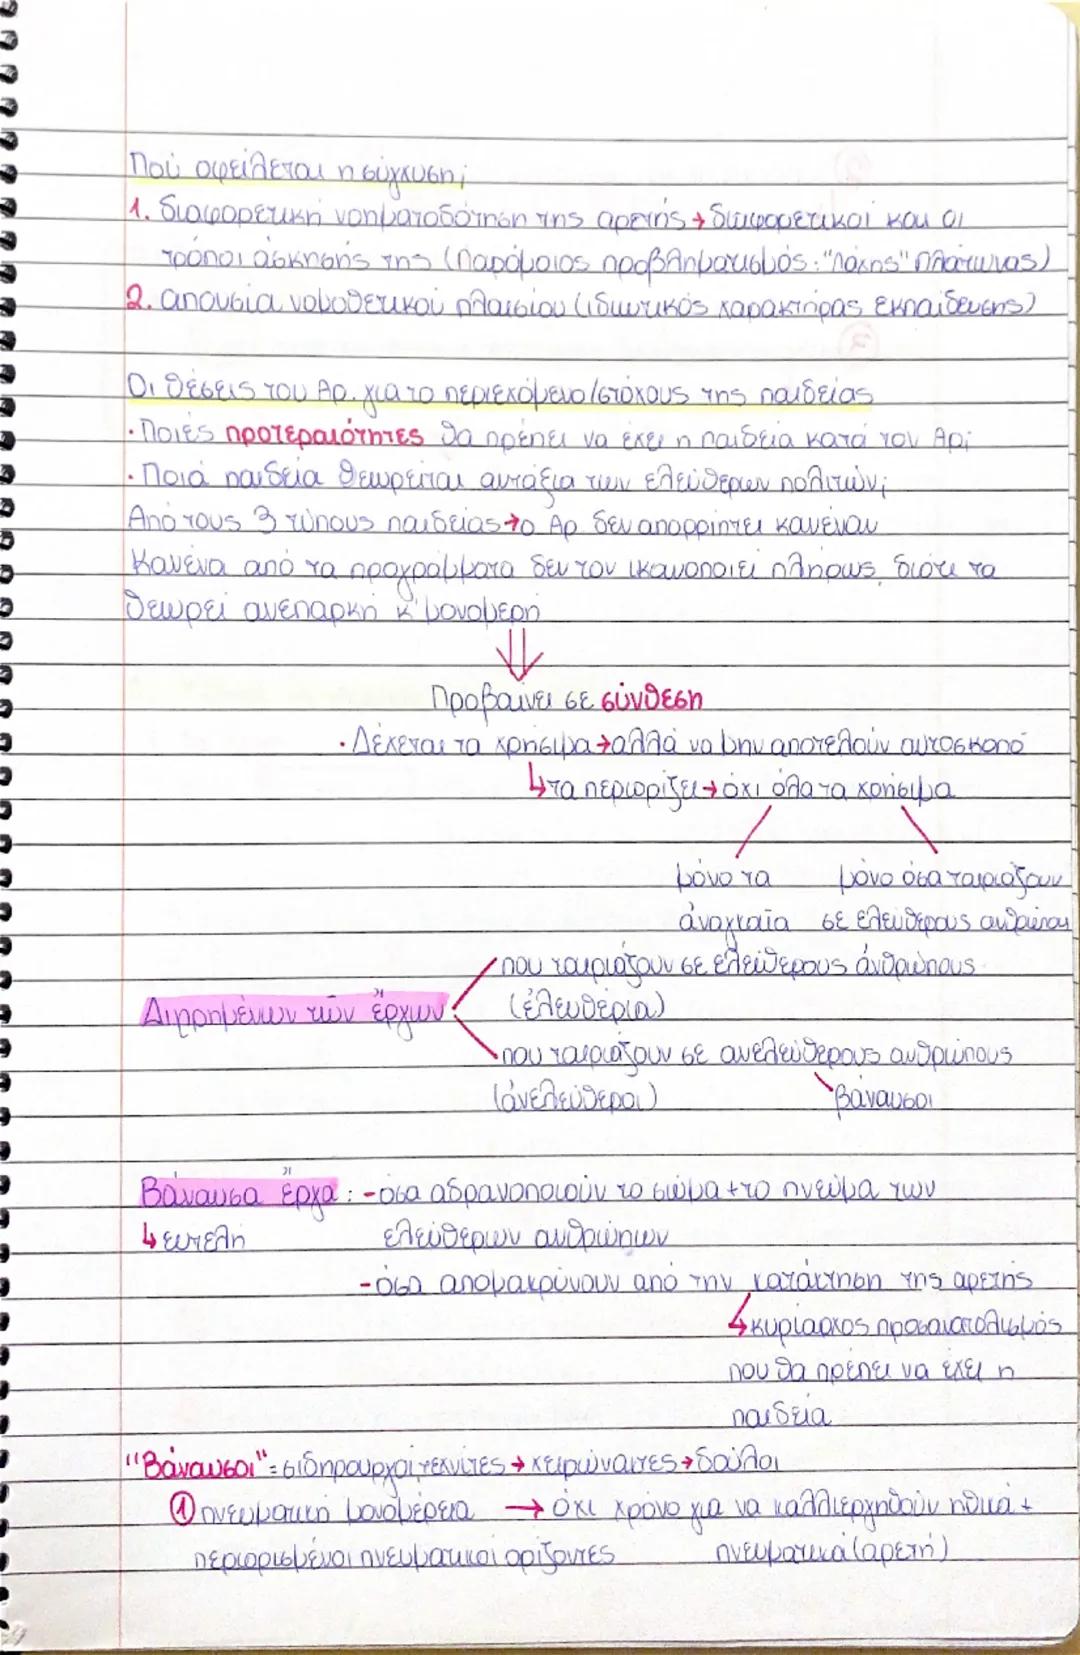 Πού οφείλεται η σύγχυση;
1. διαφορετική νοηματοδότηση της αρετής → διαφορετικοί και οι
τρόποι άσκησής της (παρόμοιος προβληματισμός: "Λάχης" Πλάτωνας)
2. απουσία νομοθετικού πλαισίου (ιδιωτικός χαρακτήρας εκπαίδευσης)
Οι θέσεις του Αρ. για το περιεχόμενο/στόχους της παιδείας
· Ποιές προτεραιότητες θα πρέπει να έχει η παιδεία κατά τον Αρ;
· Ποιά παιδεία θεωρείται αντάξια των ελεύθερων πολιτών;
Από τους 3 τύπους παιδείας → ο Αρ. δεν απορρίπτει κανέναν
Κανένα από τα προγράμματα δεν τον ικανοποιεί πλήρως, διότι τα
θεωρεί ανεπαρκή κ' μονομερή
⇓
Προβαίνει σε σύνθεση
· Δέχεται τα χρήσιμα → αλλά να μην αποτελούν αυτοσκοπό
↳ τα περιορίζει → όχι όλα τα χρήσιμα
μόνο τα μόνο όσα ταιριάζουν
αναγκαία σε ελεύθερους ανθρώπους
που ταιριάζουν σε ελεύθερους ανθρώπους
Διῃρημένων τῶν ἔργων (ἐλευθέρια)
που ταιριάζουν σε ανελεύθερους ανθρώπους
(ἀνελεύθεροι) βάναυσοι
Βάναυσα ἔργα: - όσα αδρανοποιούν το σώμα + το πνεύμα των
↳ ευτελή ελεύθερων ανθρώπων
- όσα απομακρύνουν από την κατάκτηση της αρετής
↳ κυρίαρχος προσανατολισμός
που θα πρέπει να έχει η
παιδεία
"Βάναυσοι" = σιδηρουργοί, τεχνίτες → χειρώνακτες → δούλοι
① πνευματική μονομέρεια → όχι χρόνο για να καλλιεργηθούν ηθικά +
περιορισμένοι πνευματικοί ορίζοντες πνευματικά (αρετή)